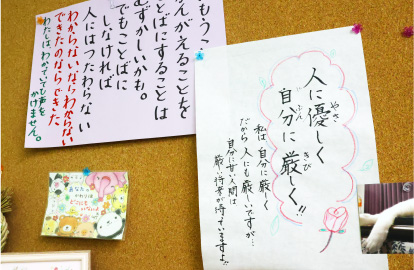 もうこ
んがえることを
とばにすることは
むずかしいかも。
でもことばに
しなければ
人にはつたわらない
わからないならわからない
できたのならできた
わたしは、わかっていても声を
かけません。
人に優しく
やさ
自分に厳しく!!
じぶん
きび
私は自分に厳しく
だから人にも厳しいですが…
自分に甘い人間は
厳しい将来が待っていますよ!!
あなたの
かわりは